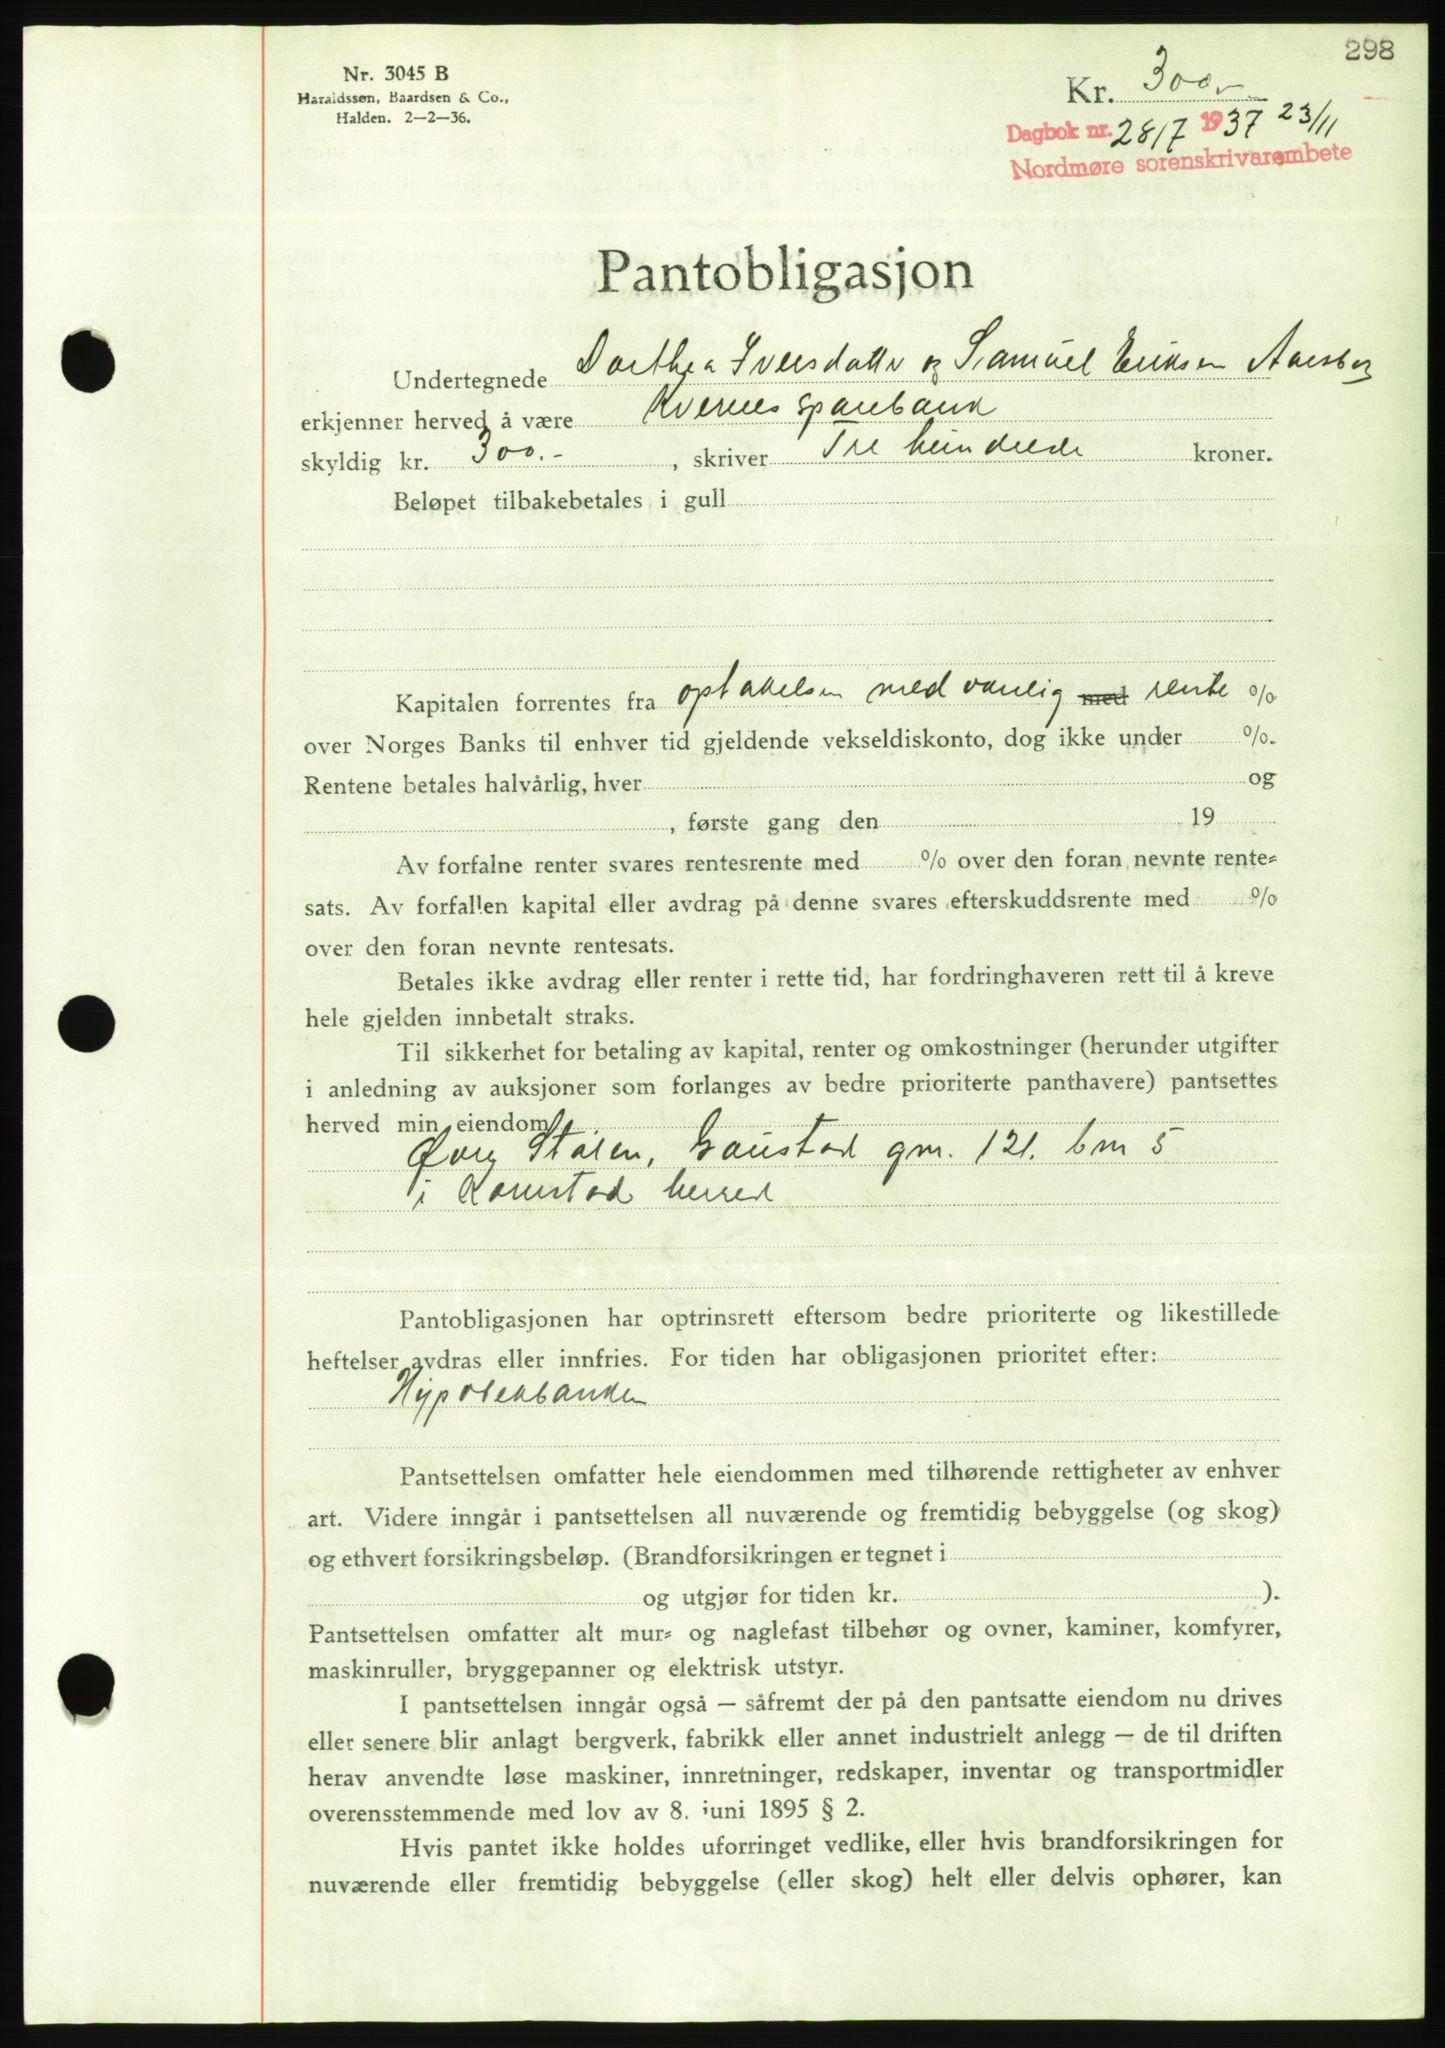 298
Nr. 3045 B
Haraldssøn, Baardsen & Co.,
Halden. 2—2—36.
Kr. 300,-
Dagbok nr. 2817 1937 23/11
Nordmøre sorenskrivarembete
Pantobligasjon
Undertegnede Dorthea Iversdatter og Samuel Eriksen
erkjenner herved å være Kvernes sparebank
skyldig kr. 300.- , skriver Tre hundrede kroner.
Beløpet tilbakebetales i gull
Kapitalen forrentes fra optakelsen med vanlig med rente %
over Norges Banks til enhver tid gjeldende vekseldiskonto, dog ikke under %.
Rentene betales halvårlig, hver og
, første gang den 19
Av forfalne renter svares rentesrente med % over den foran nevnte rente-
sats. Av forfallen kapital eller avdrag på denne svares efterskuddsrente med %
over den foran nevnte rentesats.
Betales ikke avdrag eller renter i rette tid, har fordringhaveren rett til å kreve
hele gjelden innbetalt straks.
Til sikkerhet for betaling av kapital, renter og omkostninger (herunder utgifter
i anledning av auksjoner som forlanges av bedre prioriterte panthavere) pantsettes
herved min eiendom
Øvre Stolen, Gaustad gnr. 121. bnr 5
i Kornstad herred
Pantobligasjonen har optrinsrett eftersom bedre prioriterte og likestillede
heftelser avdras eller innfries. For tiden har obligasjonen prioritet efter:
Hypotekbanken
Pantsettelsen omfatter hele eiendommen med tilhørende rettigheter av enhver
art. Videre inngår i pantsettelsen all nuværende og fremtidig bebyggelse (og skog)
og ethvert forsikringsbeløp. (Brandforsikringen er tegnet i
og utgjør for tiden kr. ).
Pantsettelsen omfatter alt mur- og naglefast tilbehør og ovner, kaminer, komfyrer,
maskinruller, bryggepanner og elektrisk utstyr.
I pantsettelsen inngår også — såfremt der på den pantsatte eiendom nu drives
eller senere blir anlagt bergverk, fabrikk eller annet industrielt anlegg — de til driften
herav anvendte løse maskiner, innretninger, redskaper, inventar og transportmidler
overensstemmende med lov av 8. juni 1895 § 2.
Hvis pantet ikke holdes uforringet vedlike, eller hvis brandforsikringen for
nuværende eller fremtidig bebyggelse (eller skog) helt eller delvis ophører, kan